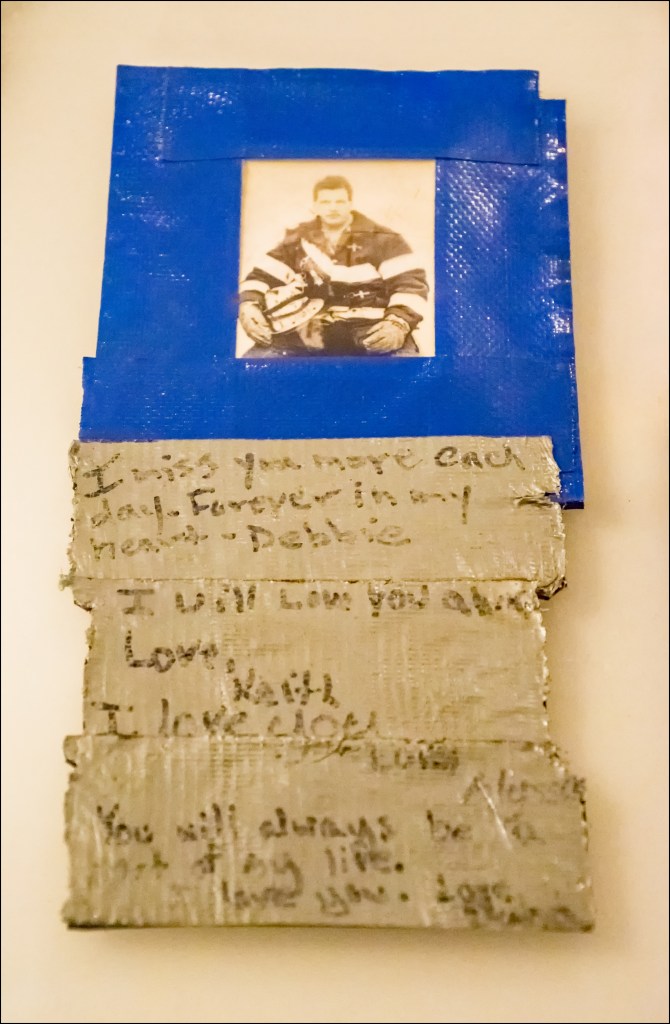 I miss you more each
day. Forever in my
heart - Debbie
I will Love you
Love,
Keith
I love you
Love
You will always be a
part of my life.
I love you. Love